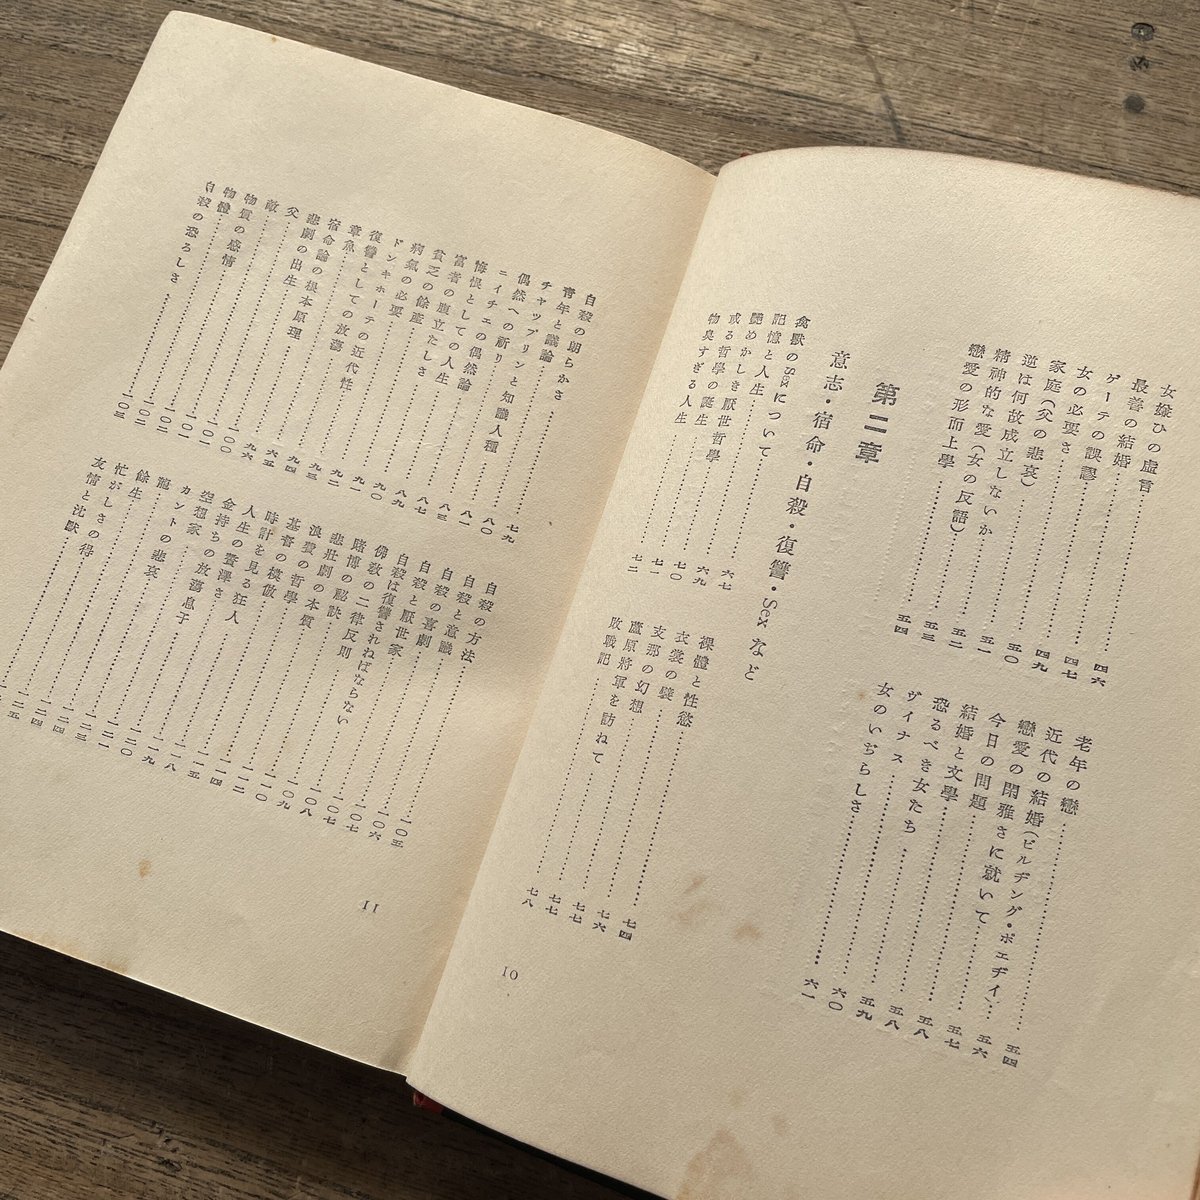 女嫌ひの虚言……四六
最善の結婚……四七
ゲーテの誤謬……四七
女の必要さ……四九
家庭(父の悲哀)……五〇
逆は何故成立しないか……五一
精神的な愛(女の反語)……五二
戀愛の形而上學……五三
五四
老年の戀……五四
近代の結婚(ビルヂング・ボエヂイ)……五六
戀愛の閑雅さに就いて……五七
今日の問題……五八
結婚と文學……五八
恐るべき女たち……五九
ヴイナス……六〇
女のいぢらしさ……六一
第二章
意志・宿命・自殺・復讐・Sexなど
禽獸のSexについて……六七
記憶と人生……六九
艶めかしき厭世哲學……七〇
或る哲學の誕生……七一
物臭すぎる人生……七二
裸體と性慾……七四
衣裳の襞……七六
支那の幻想……七七
蘆原將軍を訪ねて……七七
敗戰記……七八
10
自殺の朗らかさ……七九
青年と議論……八〇
チャップリンと知識人種……八一
偶然への祈り……八一
ニイチエの偶然論……八三
悔恨としての人生……八七
富者の腹立たしさ……八九
貧乏の餘產……九〇
病氣の必要……九一
ドンキホーテの近代性……九二
復讐としての放蕩……九三
章魚……九四
宿命論の根本原理……九五
悲劇の出生……九六
父……一〇〇
敵……一〇〇
物質の感情……一〇一
物體……一〇二
自殺の恐ろしさ……一〇三
自殺の方法……一〇五
自殺と意識……一〇六
自殺の喜劇……一〇七
自殺と厭世家……一〇七
自殺は復讐されねばならない……一〇八
佛敎の二律反則……一〇九
賭博の祕訣……一一〇
悲壯劇の本質……一一〇
浪費の哲學……一一二
基督の模倣……一一四
時計を見る狂人……一一五
人生の贅澤さ……一一八
金持ちの放蕩息子……一一九
空想家……一二〇
カントの悲哀……一二一
龍……一二三
餘生……一二四
忙がしさの得……一二四
友情と沈默……一二五
11